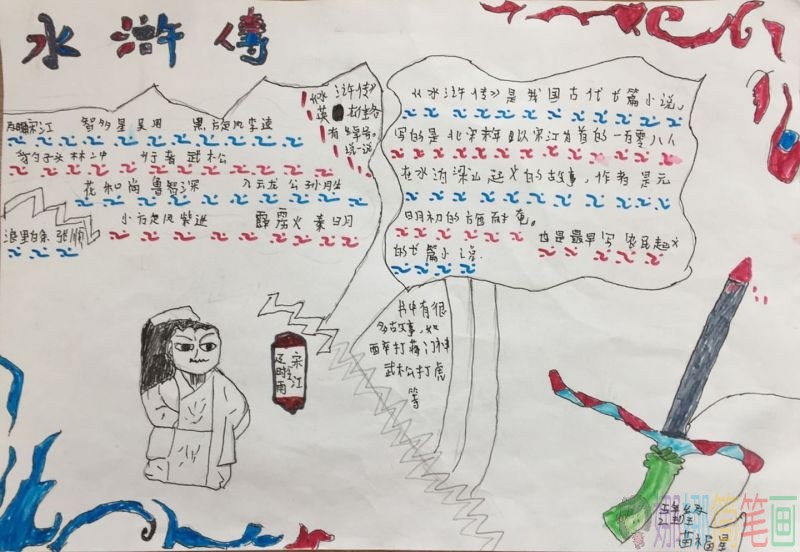 水浒传
《水浒传》
英雄
有绰号,
说说
及时雨宋江 智多星吴用 黑旋风李逵
豹子头林冲 行者武松
花和尚鲁智深 入云龙公孙胜
小旋风柴进 霹雳火秦明
浪里白条张顺
《水浒传》是我国古代长篇小说。
写的是北宋末年以宋江为首的一百零八人
在水泊梁山起义的故事,作者是元
末明初的施耐庵。
也是最早写农民起义
的长篇小说.
书中有很
多故事,如
醉打蒋门神
武松打虎
等
宋江
及时雨
苗福星
娜娜笔画